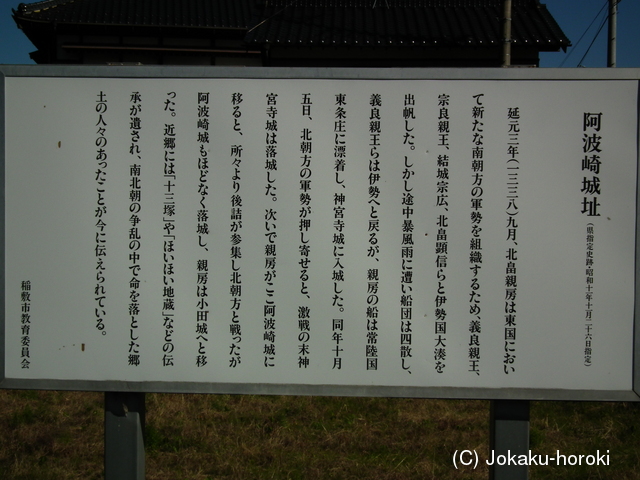 阿波崎城址(県指定史跡・昭和十年十月二十六日指定)
延元三年(一三三八)九月、北畠親房は東国におい
て新たな南朝方の軍勢を組織するため、義良親王、
宗良親王、結城宗広、北畠顕信らと伊勢国大湊を
出帆した。しかし途中暴風雨に遭い船団は四散し、
義良親王らは伊勢へと戻るが、親房の船は常陸国
東条庄に漂着し、神宮寺城に入城した。同年十月
五日、北朝方の軍勢が押し寄せると、激戦の末神
宮寺城は落城した。次いで親房がここ阿波崎城に
移ると、所々より後詰が参集し北朝方と戦ったが
阿波崎城もほどなく落城し、親房は小田城へと移
った。近郷には「十三塚」や「ほいほい地蔵」などの伝
承が遺され、南北朝の争乱の中で命を落とした郷
土の人々のあったことが今に伝えられている。
稲敷市教育委員会
(C) Jokaku-horoki